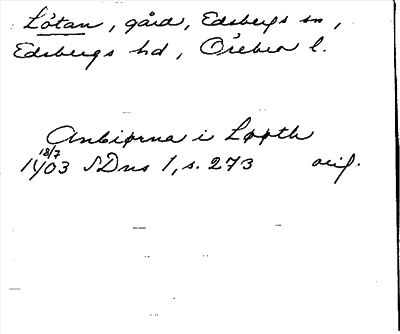 Lötan, gård, Edsbergs sn,
Edsbergs hd, Örebro l.
Anbiørna i Løpth
18/7
1403 SDns 1, s. 273 orig.